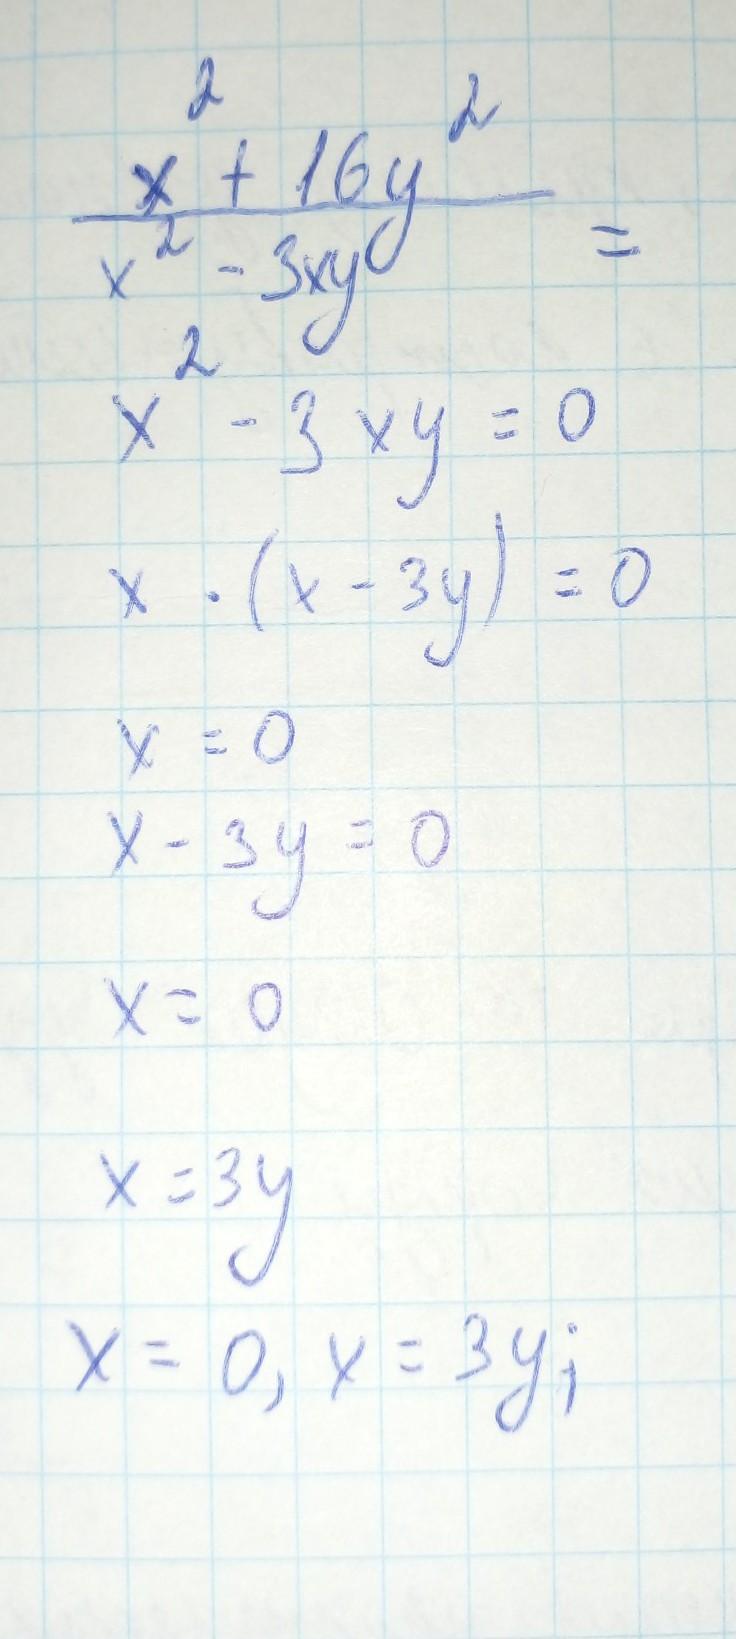 x² + 16y²
x² - 3xy =
x² - 3xy = 0
x · (x - 3y) = 0
x = 0
x - 3y = 0
x = 0
x = 3y
x = 0, x = 3y;